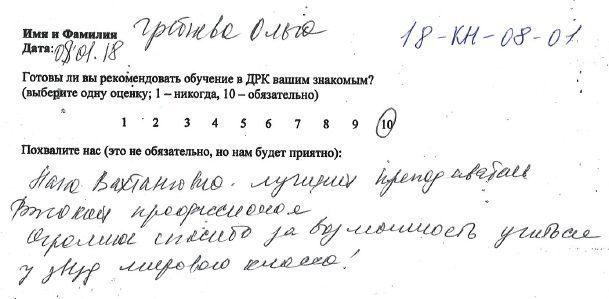 Имя и Фамилия Ольга
Дата: 08.01.18
18-КН-08-01
Готовы ли вы рекомендовать обучение в ДРК вашим знакомым?
(выберите одну оценку; 1 – никогда, 10 – обязательно)
1 2 3 4 5 6 7 8 9 10
Похвалите нас (это не обязательно, но нам будет приятно):
Вахтанговна лучший преподаватель
Высокий профессионал
Огромное спасибо за возможность учиться
у звезд мирового класса!